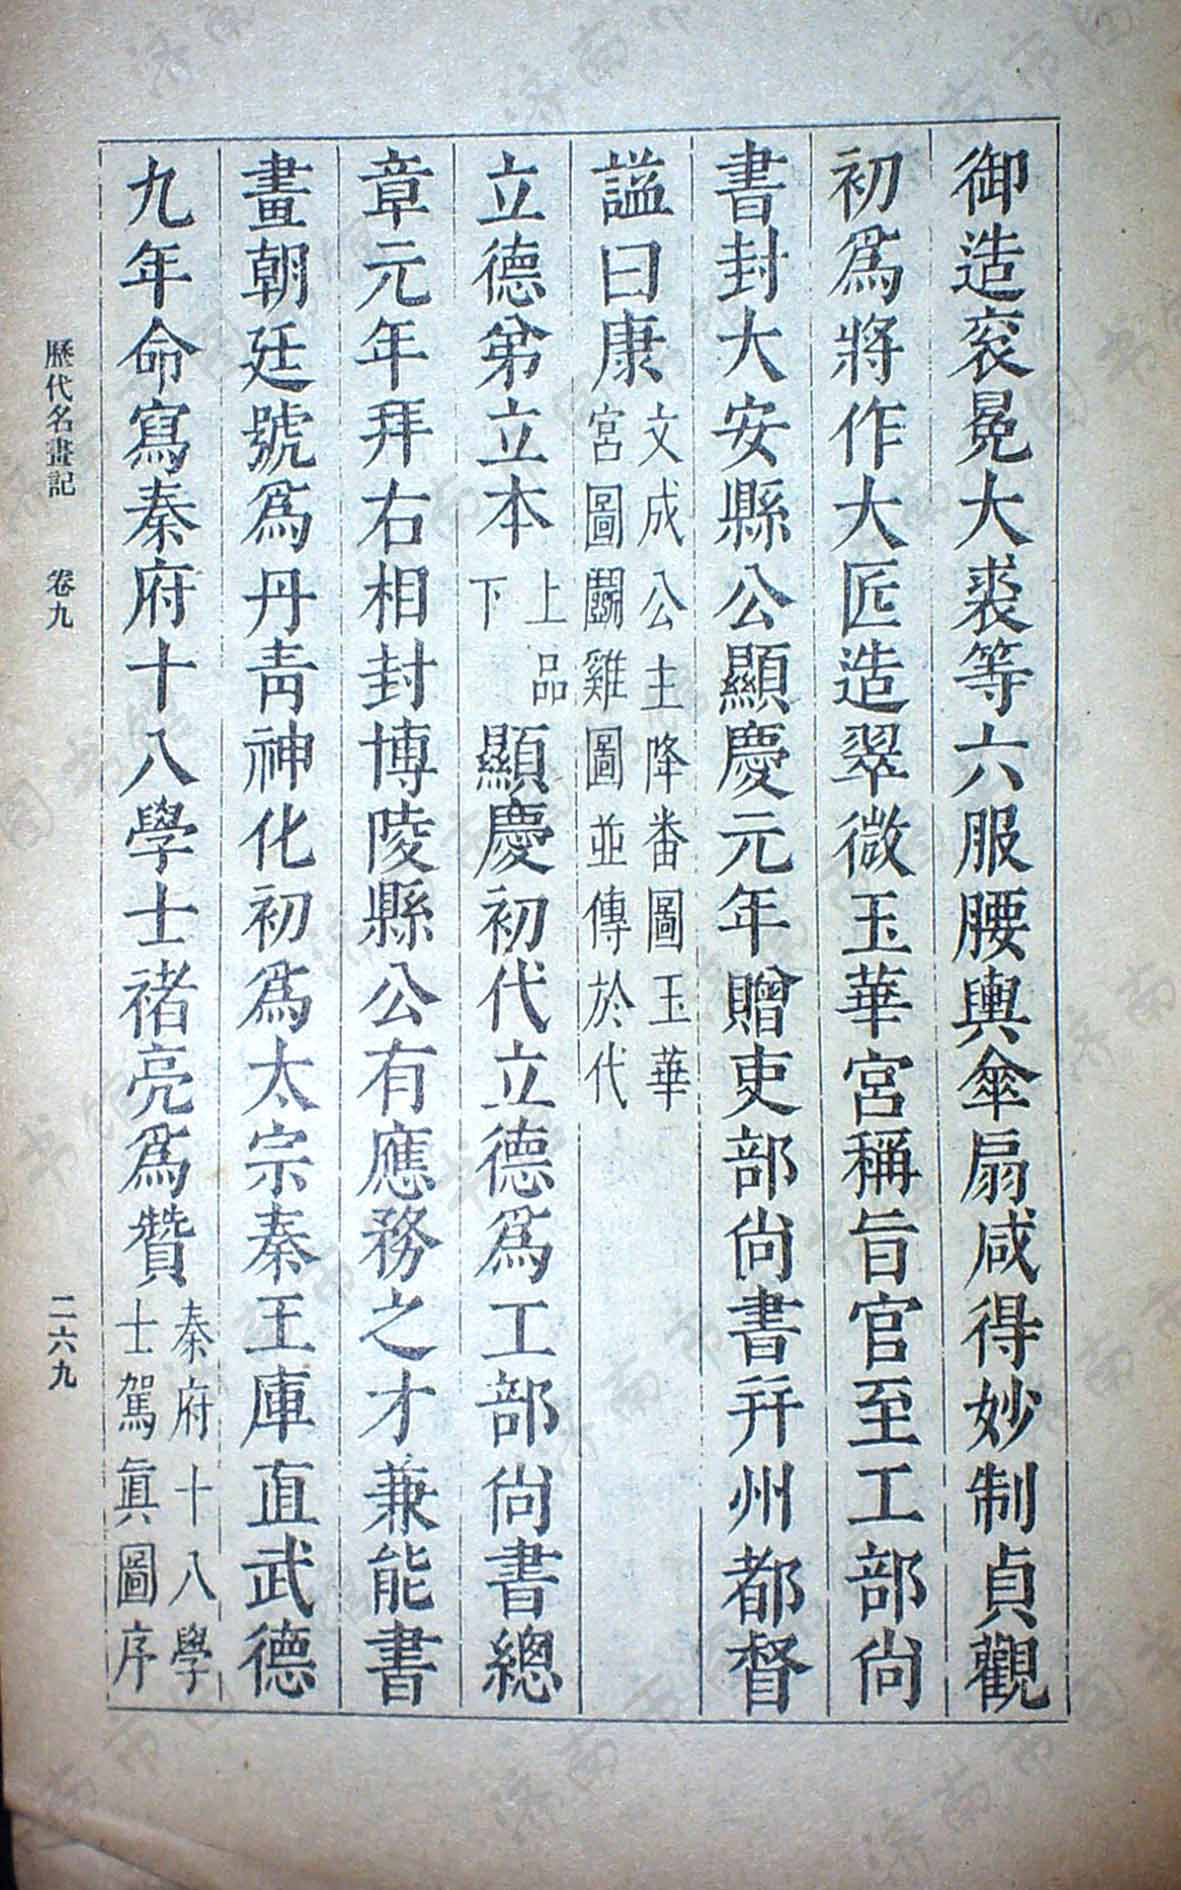 御造衮冕大裘等六服腰輿傘扇咸得妙制貞觀
初爲將作大匠造翠微玉華宮稱旨官至工部尚
書封大安縣公顯慶元年贈吏部尚書幷州都督
謚曰康文成公主降番圖玉華
宮圖鬭雞圖並傳於代
立德弟立本上品
下
顯慶初代立德爲工部尚書總
章元年拜右相封博陵縣公有應務之才兼能書
畫朝廷號爲丹青神化初爲太宗秦王庫直武德
九年命寫秦府十八學士褚亮爲贊秦府十八學
士駕真圖序
歷代名畫記 卷九 二六九
济南市图书馆